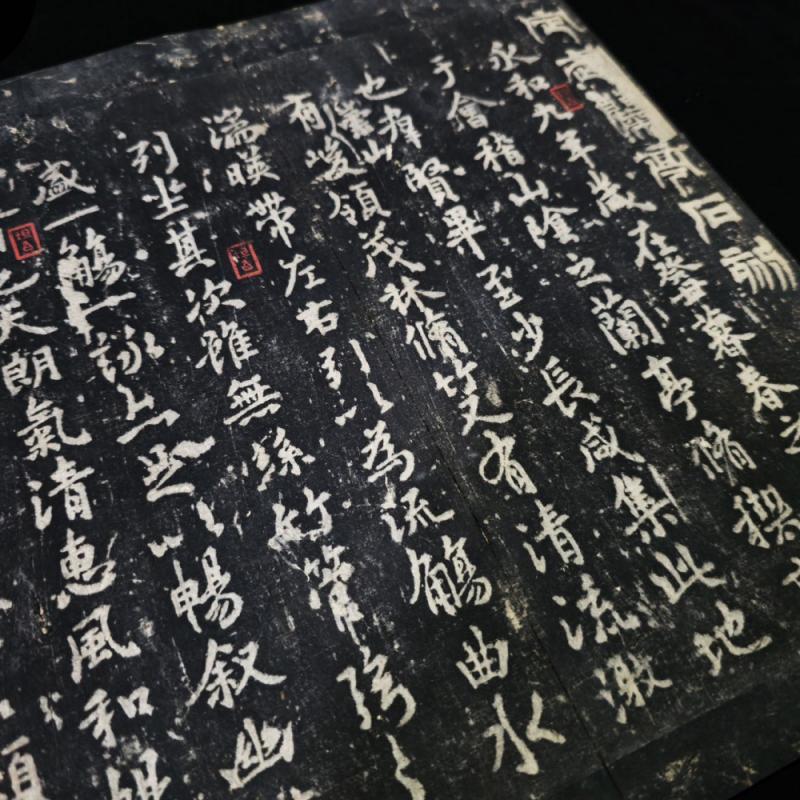 定武蘭亭石刻
永和九年歲在癸丑暮春之
于會稽山陰之蘭亭脩稧
也群賢畢至少長咸集此地
有崇山峻領茂林脩竹又有清流激
湍暎帶左右引以為流觴曲水
列坐其次雖無絲竹管弦之
盛一觴一詠亦足以暢叙幽
也天朗氣清惠風和暢